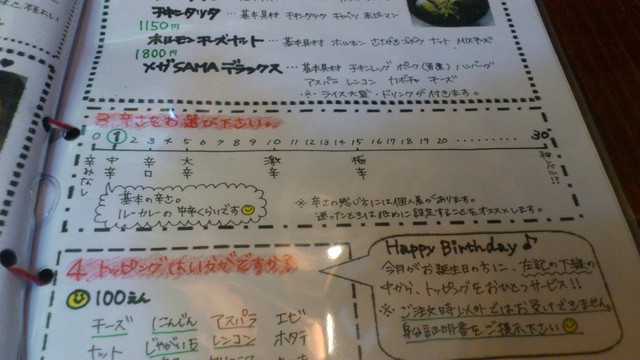 チキンカツタ … 基本具材 チキンカツ キャベツ
1150円
ホルモンチーズナット … 基本具材 ホルモン ささげ ゴボウ ナット MIXチーズ
1800円
メガSAMAデラックス … 基本具材 チキンレッグ ポーク(角煮) ハンバーグ
アスパラ レンコン カボチャ チーズ
※ライス大盛、ドリンクが付きます。
3 辛さをお選び下さい。
0 1 2 3 4 5 6 7 8 9 10 11 12 13 14 15 16 17 18 19 20 ......... 30
辛みなし 中辛 辛口 大辛 激辛 極辛 神レベル!!
基本の辛さ。
ルーカレーの中辛くらいです
※辛さの感じ方には個人差があります。
迷ったときは低めに設定することをオススメします。
4 トッピングはいかがですか?
100えん
チーズ にんじん アスパラ エビ
ナット じゃがいも レンコン ホタテ
Happy Birthday♪
今月がお誕生日の方に、左記の下線の
中から、トッピングをおひとつサービス!!
※ご注文時以外ではお受けできません。
身分証明書をご提示下さい